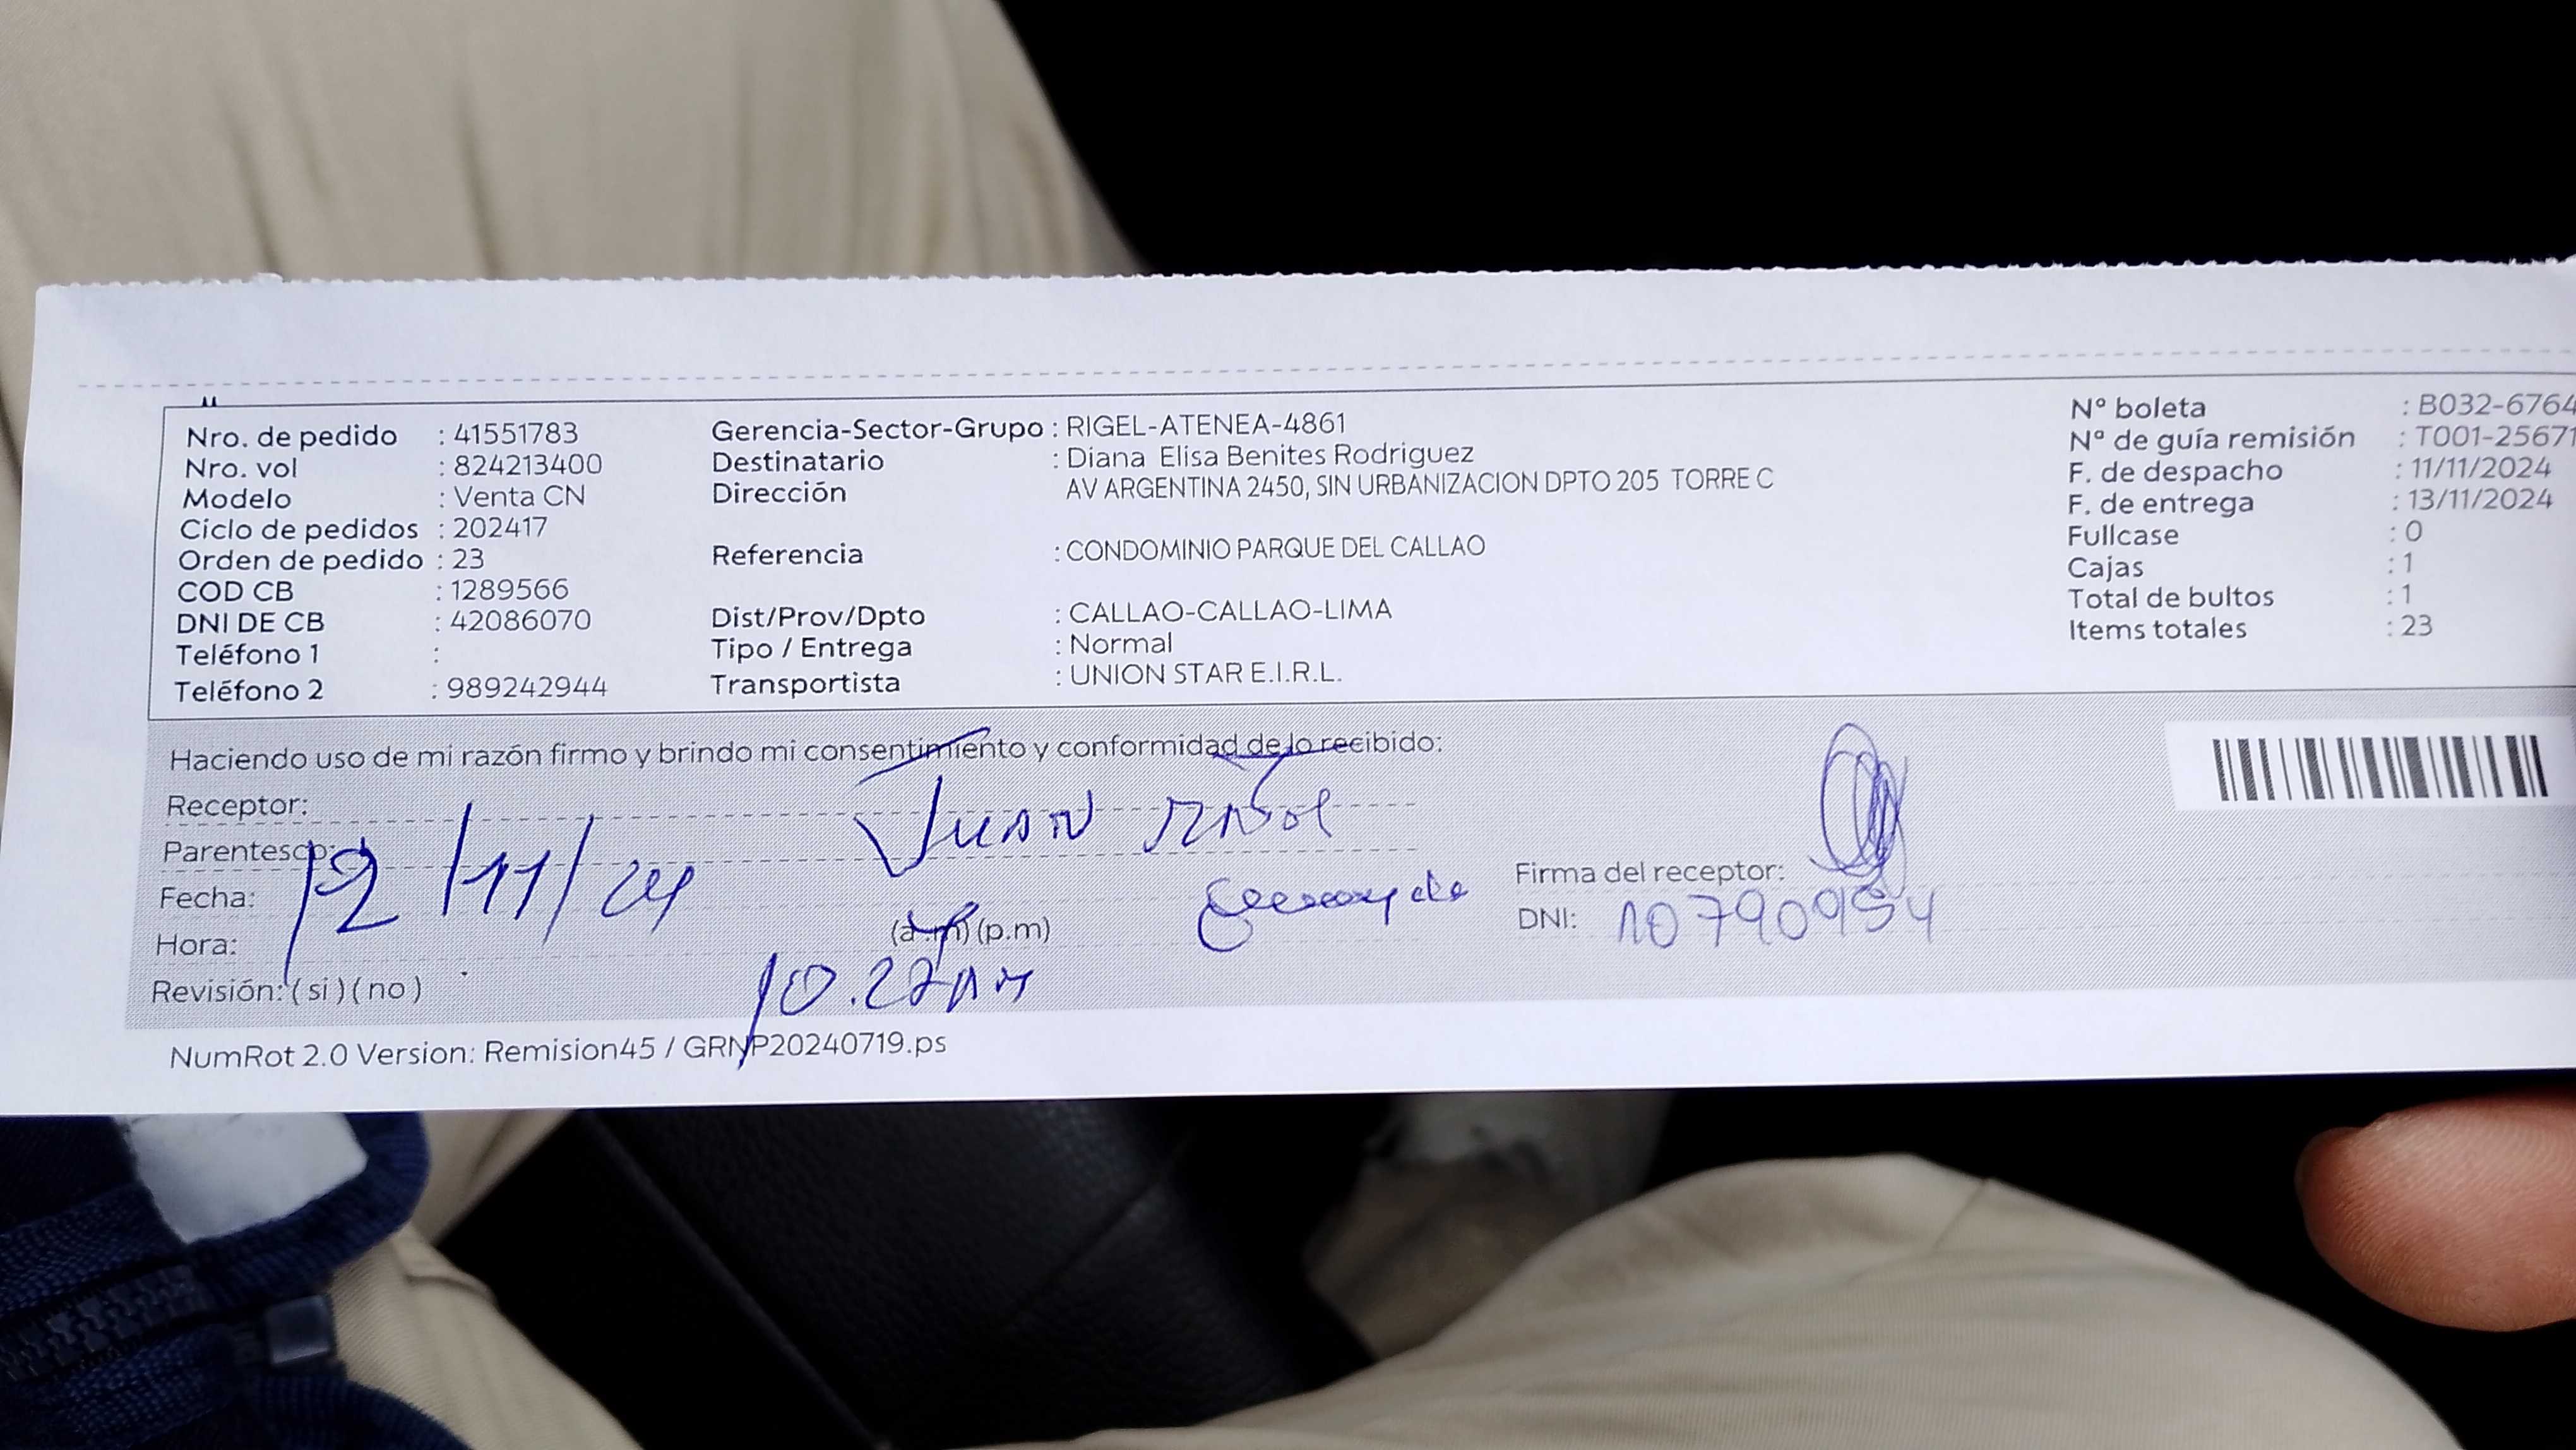 Nro. de pedido : 41551783
Nro. vol : 824213400
Modelo : Venta CN
Ciclo de pedidos : 202417
Orden de pedido : 23
COD CB : 1289566
DNI DE CB : 42086070
Teléfono 1 :
Teléfono 2 : 989242944
Gerencia-Sector-Grupo : RIGEL-ATENEA-4861
Destinatario : Diana Elisa Benites Rodriguez
Dirección AV ARGENTINA 2450, SIN URBANIZACION DPTO 205 TORRE C
Referencia : CONDOMINIO PARQUE DEL CALLAO
Dist/Prov/Dpto : CALLAO-CALLAO-LIMA
Tipo / Entrega : Normal
Transportista : UNION STAR E.I.R.L.
N° boleta : B032-6764
N° de guía remisión : T001-25671
F. de despacho : 11/11/2024
F. de entrega : 13/11/2024
Fullcase : 0
Cajas : 1
Total de bultos : 1
Items totales : 23
Haciendo uso de mi razón firmo y brindo mi consentimiento y conformidad de lo recibido:
Receptor: Juan
Parentesco:
Fecha: 12/11/24
Hora: (a.m) (p.m)
10.22 AM
Revisión: ( si ) ( no )
Firma del receptor:
DNI: 10790954
NumRot 2.0 Version: Remision45 / GRNP20240719.ps